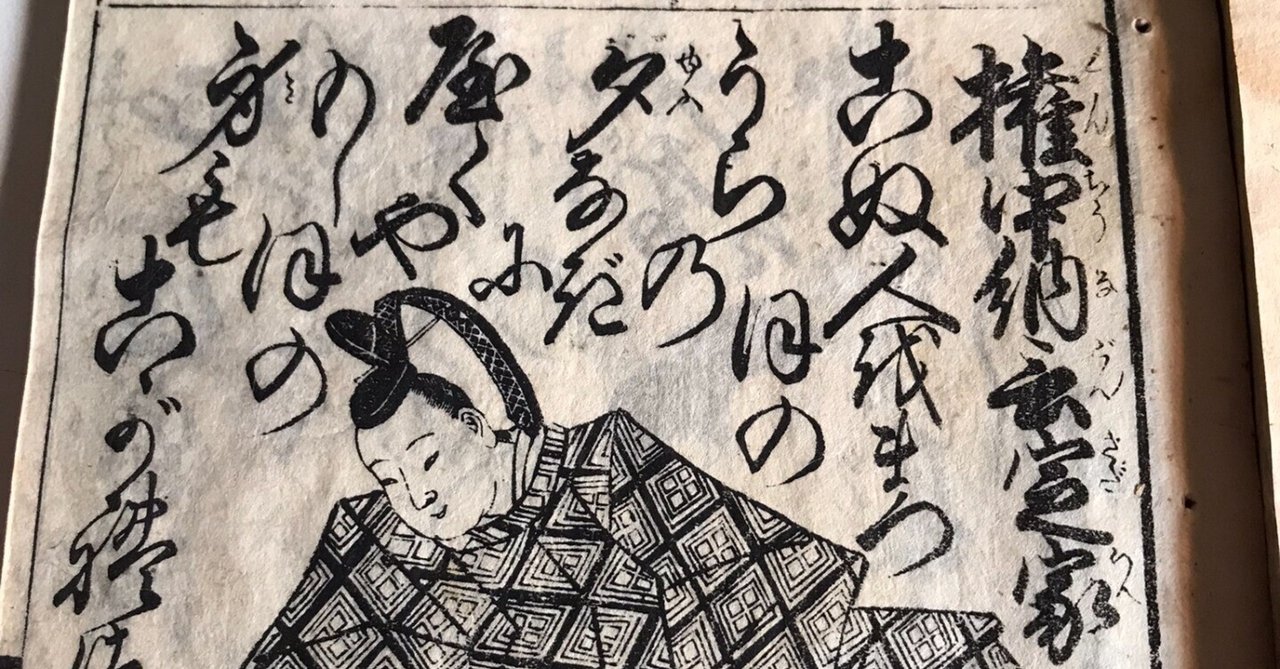 権中納言定家
こぬ人越まつ
ほの
うら乃
夕なぎ
に
屋くや
もしほの
身も
こが禮